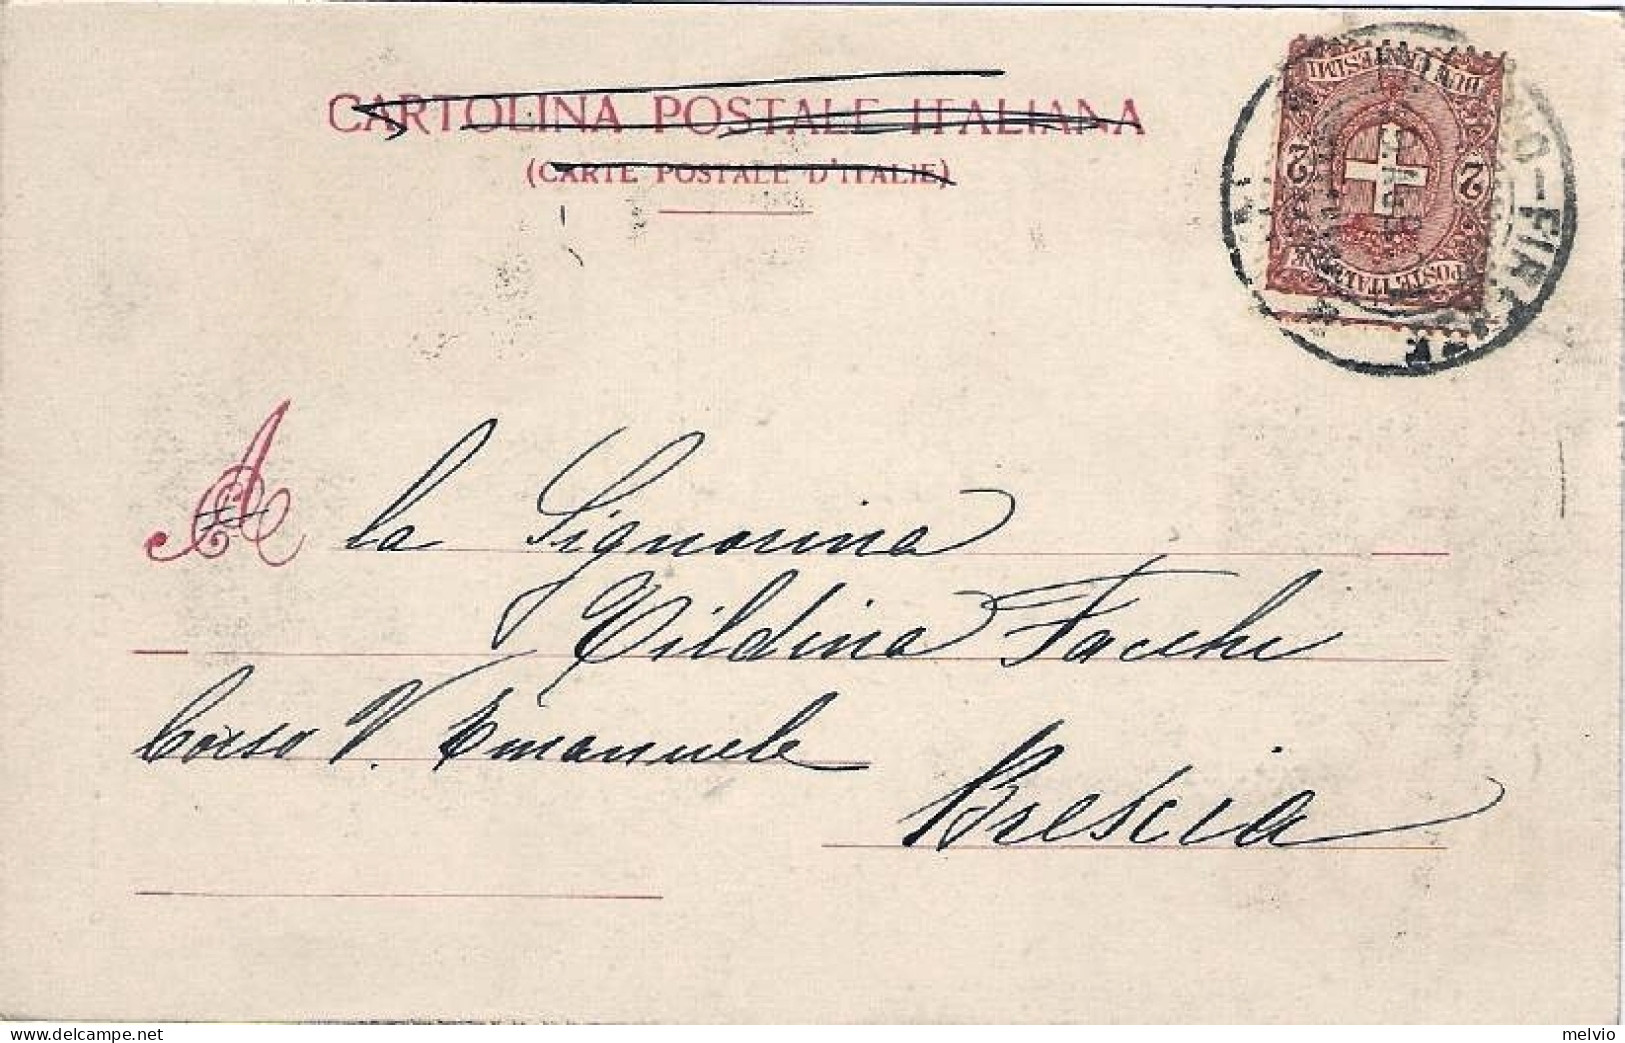 CARTOLINA POSTALE ITALIANA
(CARTE POSTALE D'ITALIE)
DUE CENTESIMI
2 2
POSTE ITALIANE
A la Signorina
Tildina Facchi
Corso V. Emanuele
Brescia
delcampe.net
melvio